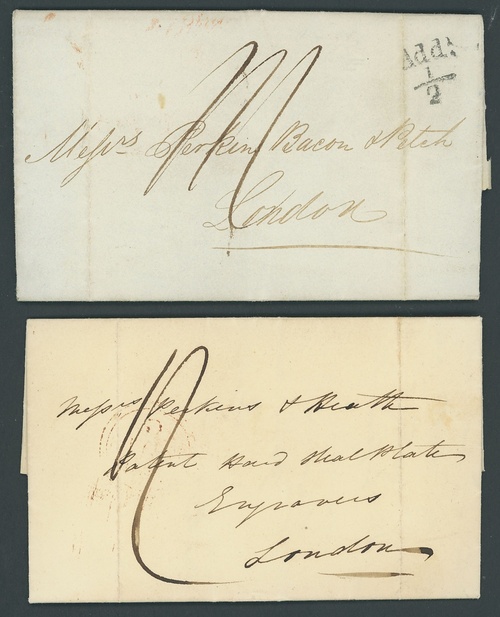 Add:
1/2
Messrs Perkins Bacon & Petch
London
Messrs Perkins & Heath
Patent Hard Steel Plate
Engravers
London